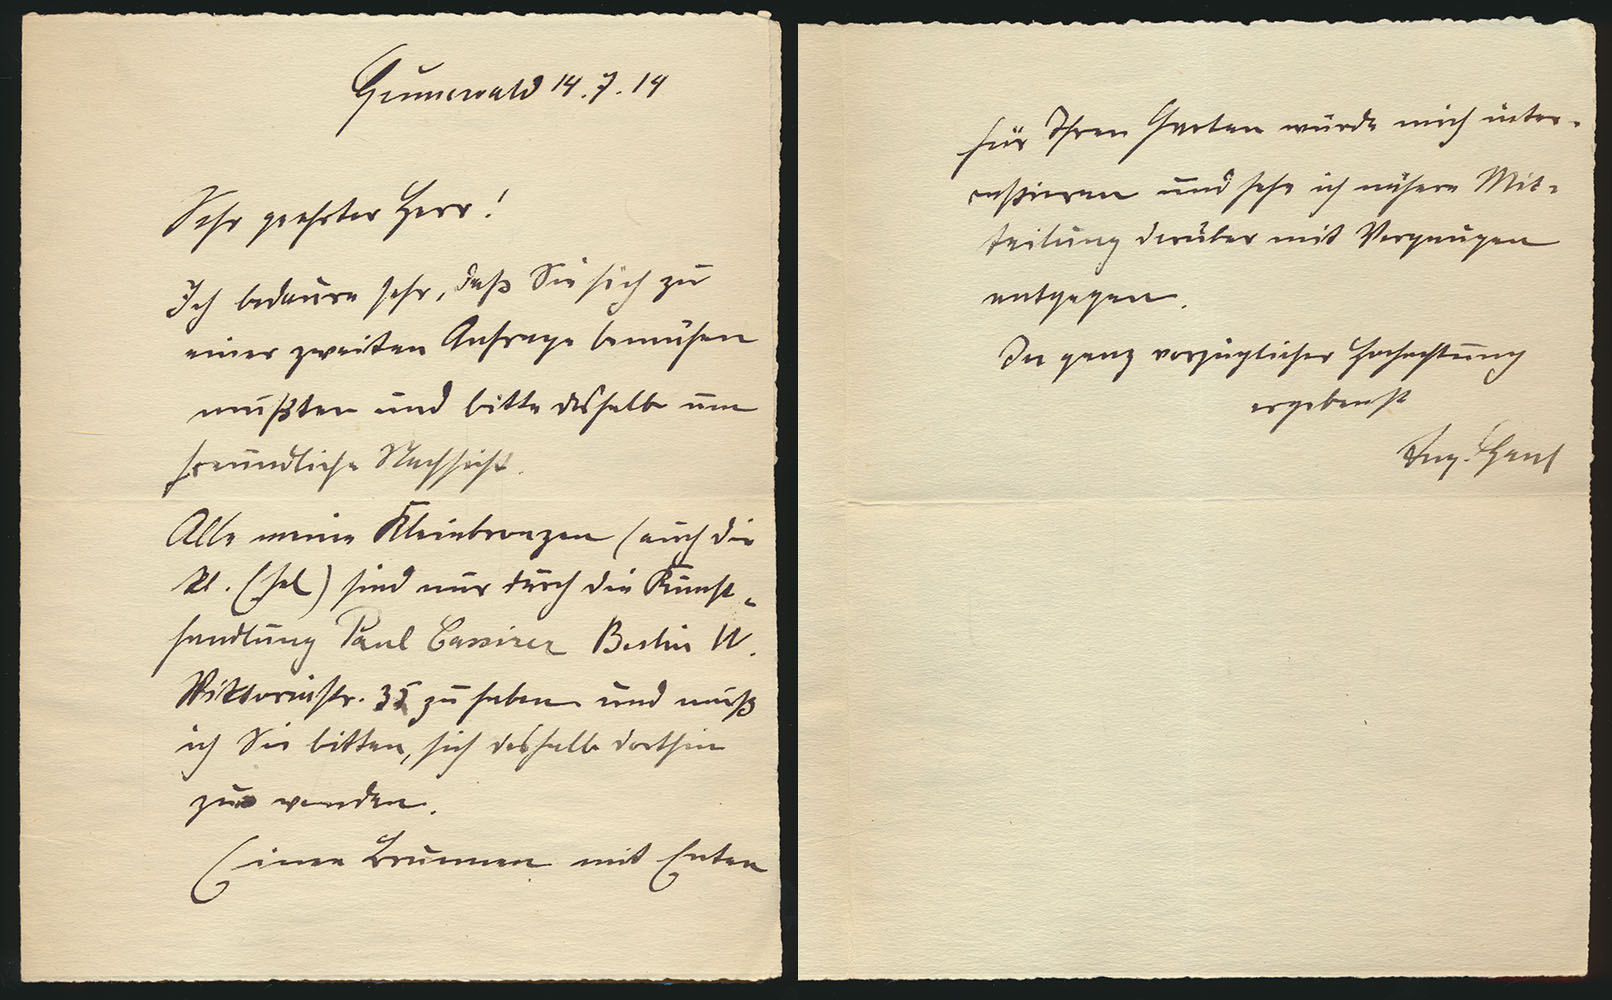 Grunewald 14.7.14
Sehr geehrter Herr!
Ich bedaure sehr, daß Sie sich zu
einer zweiten Anfrage bemühen
mußten und bitte deshalb um
freundliche Nachsicht.
Alle meine Kleinbronzen (auch die
kl. Esel) sind nur durch die Kunst-
handlung Paul Cassirer Berlin W.
Viktoriastr. 35 zu haben und muß
ich Sie bitten, sich deshalb dorthin
zu wenden.
Einen Brunnen mit Enten
für Ihren Garten würde mich inter-
essieren und sehe ich nähere Mit-
teilung darüber mit Vergnügen
entgegen.
In ganz vorzüglicher Hochachtung
ergebenst
Aug. Gaul